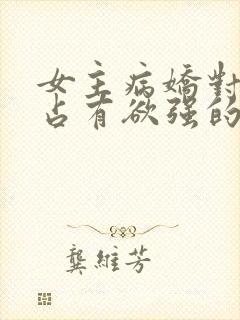 女主病嬌對
占有欲强的
龔維芳